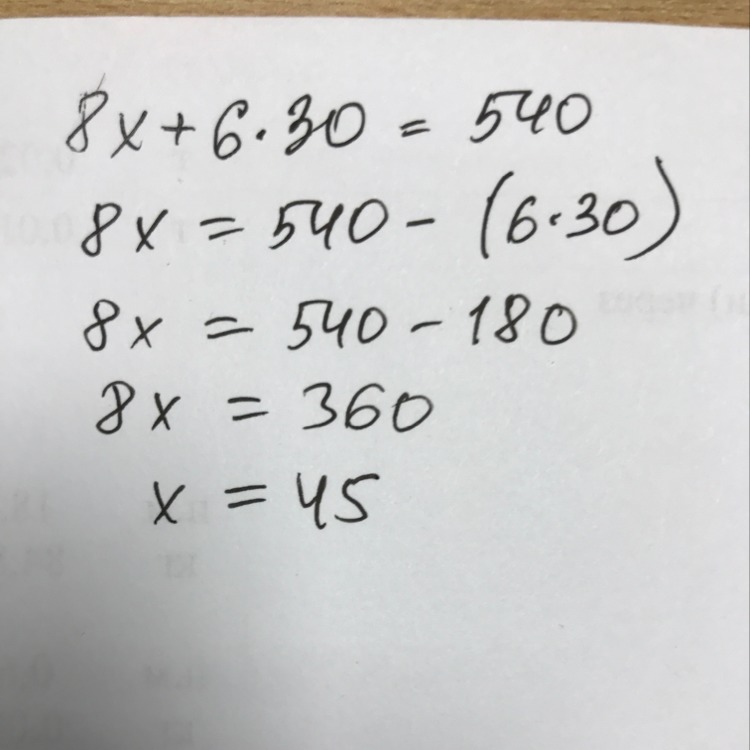 8x + 6·30 = 540
8x = 540 - (6·30)
8x = 540 - 180
8x = 360
x = 45